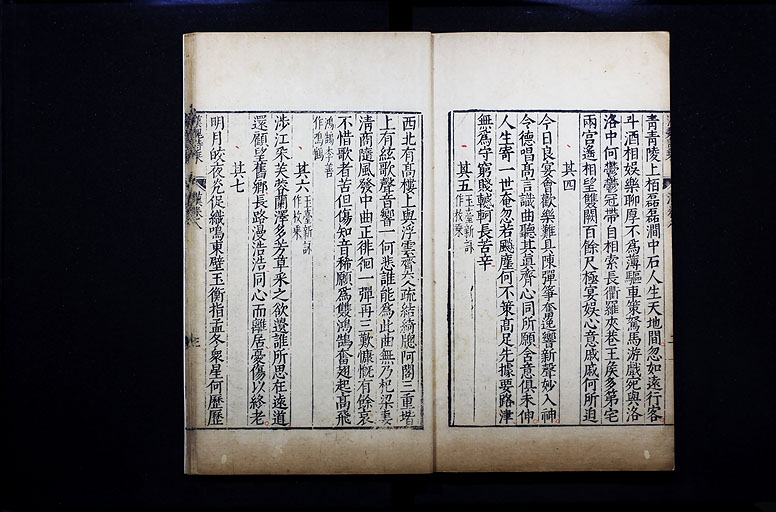 青青陵上栢磊磊澗中石人生天地間忽如遠行客
斗酒相娛樂聊厚不為薄驅車策駑馬游戲宛與洛
洛中何鬱鬱冠帶自相索長衢羅夾巷王侯多第宅
兩宮遙相望雙闕百餘尺極宴娛心意戚戚何所迫
其四
今日良宴會歡樂難具陳彈箏奮逸響新聲妙入神
令德唱高言識曲聽其真齊心同所願含意俱未伸
人生寄一世奄忽若飈塵何不策高足先據要路津
無為守窮賤轗軻長苦辛
其五玉臺新詠作枚乘
西北有高樓上與浮雲齊交疏結綺牕阿閣三重堦
上有絃歌聲音響一何悲誰能為此曲無乃杞梁妻
清商隨風發中曲正徘徊一彈再三歎慷慨有餘哀
不惜歌者苦但傷知音稀願為雙鴻鵠奮翅起高飛
鴻鵠李善作鳴鶴
其六玉臺新詠作枚乘
涉江采芙蓉蘭澤多芳草采之欲遺誰所思在遠道
還顧望舊鄉長路漫浩浩同心而離居憂傷以終老
其七
明月皎夜光促織鳴東壁玉衡指孟冬衆星何歷歷